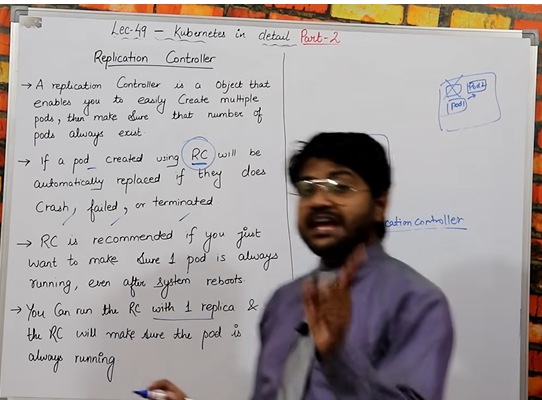 Lec-49 – Kubernetes in detail Part-2
Replication Controller
→ A replication Controller is a Object that
enables you to easily Create multiple
pods, then make Sure that number of
pods always exist.
→ If a pod created using RC will be
automatically replaced if they does
Crash, failed, or terminated
→ RC is recommended if you just
Want to make Sure 1 pod is always
running, even after system reboots.
→ You Can run the RC with 1 replica &
the RC will make sure the pod is
always running
Pod2
Pod1
cation controller